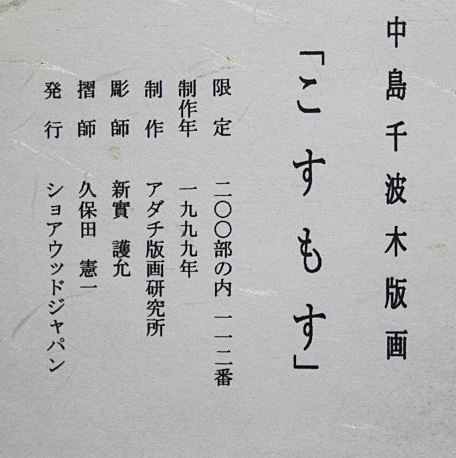 中島千波木版画
「こすもす」
限定 二〇〇部の内 一一二番
制作年 一九九九年
制作 アダチ版画研究所
彫師 新實 護允
摺師 久保田 憲一
発行 ショアウッドジャパン